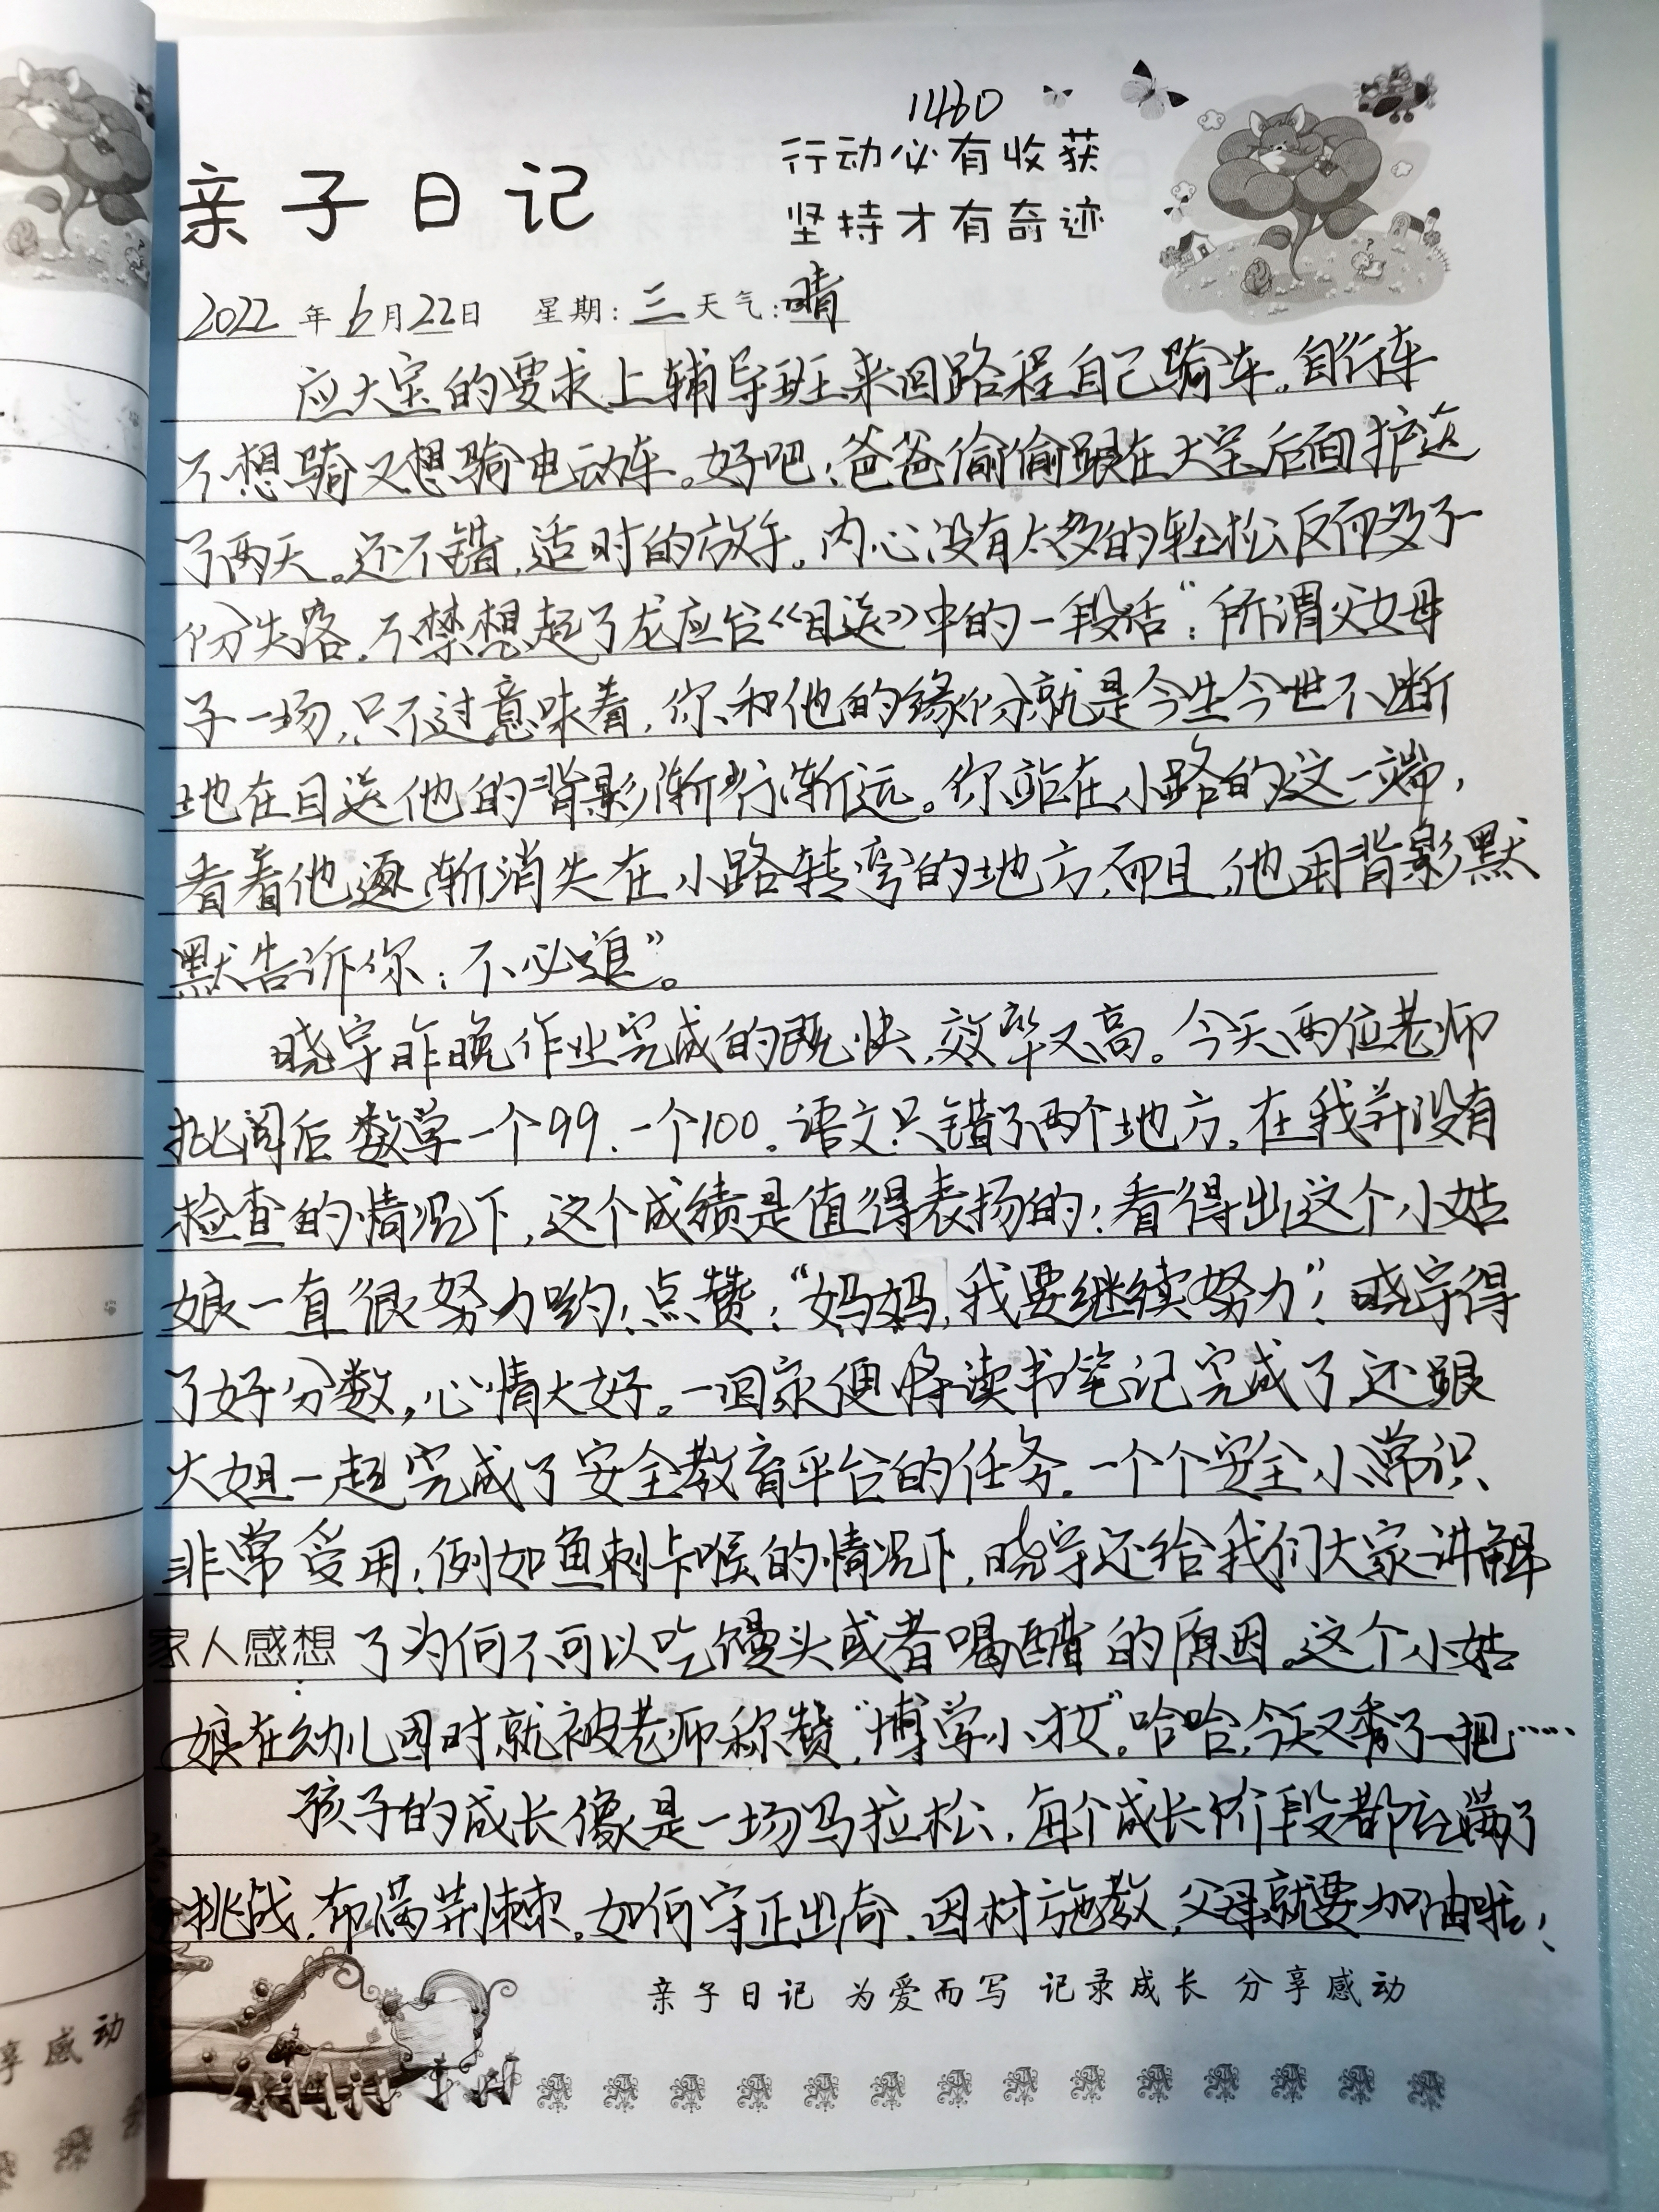 1460
行动必有收获
亲子日记
坚持才有奇迹
2022年6月22日 星期:三 天气:晴
应大宝的要求上辅导班来回路程自己骑车,自行车
不想骑又想骑电动车。好吧!爸爸偷偷跟在大宝后面护送
了两天。还不错,适时的放手。内心没有太多的轻松反而多了一
份失落。不禁想起了龙应台《目送》中的一段话“:所谓父女母
子一场,只不过意味着,你和他的缘份就是今生今世不断
地在目送他的背影渐行渐远。你站在小路的这一端,
看着他逐渐消失在小路转弯的地方,而且,他用背影默
默告诉你:不必追”。
晓宇昨晚作业完成的既快,效率又高。今天两位老师
批阅后数学一个99、一个100。语文只错了两个地方。在我并没有
检查的情况下,这个成绩是值得表扬的!看得出这个小姑
娘一直很努力哟!点赞!“妈妈,我要继续努力”!晓宇得
了好分数,心情大好。一回家便将读书笔记完成了,还跟
大姐一起完成了安全教育平台的任务。一个个安全小常识
非常受用!例如鱼刺卡喉的情况下,晓宇还给我们大家讲解
家人感想 了为何不可以吃馒头或者喝醋的原因。这个小姑
:
娘在幼儿园时就被老师称赞“博学小才女”。哈哈,今天又秀了一把……
孩子的成长像是一场马拉松,每个成长阶段都充满了
挑战,布满荆棘。如何守正出奇、因材施教,父母就要加油啦!
亲子日记 为爱而写 记录成长 分享感动
享感动